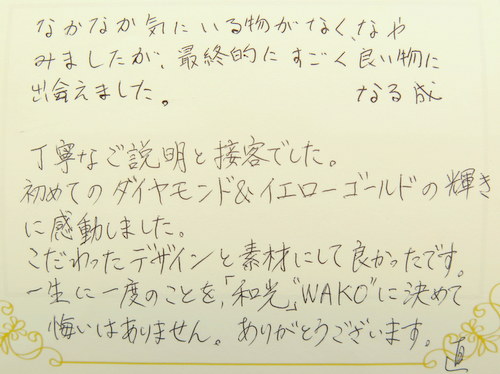 なかなか気にいる物がなく、なや
みましたが、最終的にすごく良い物に
出會えました。 なる成
丁寧なご説明と接客でした。
初めてのダイヤモンド&イエローゴールドの輝き
に感動しました。
こだわったデザインと素材にして良かったです。
一生に一度のことを、「和光」"WAKO"に決めて
悔いはありません。ありがとうございます。
直